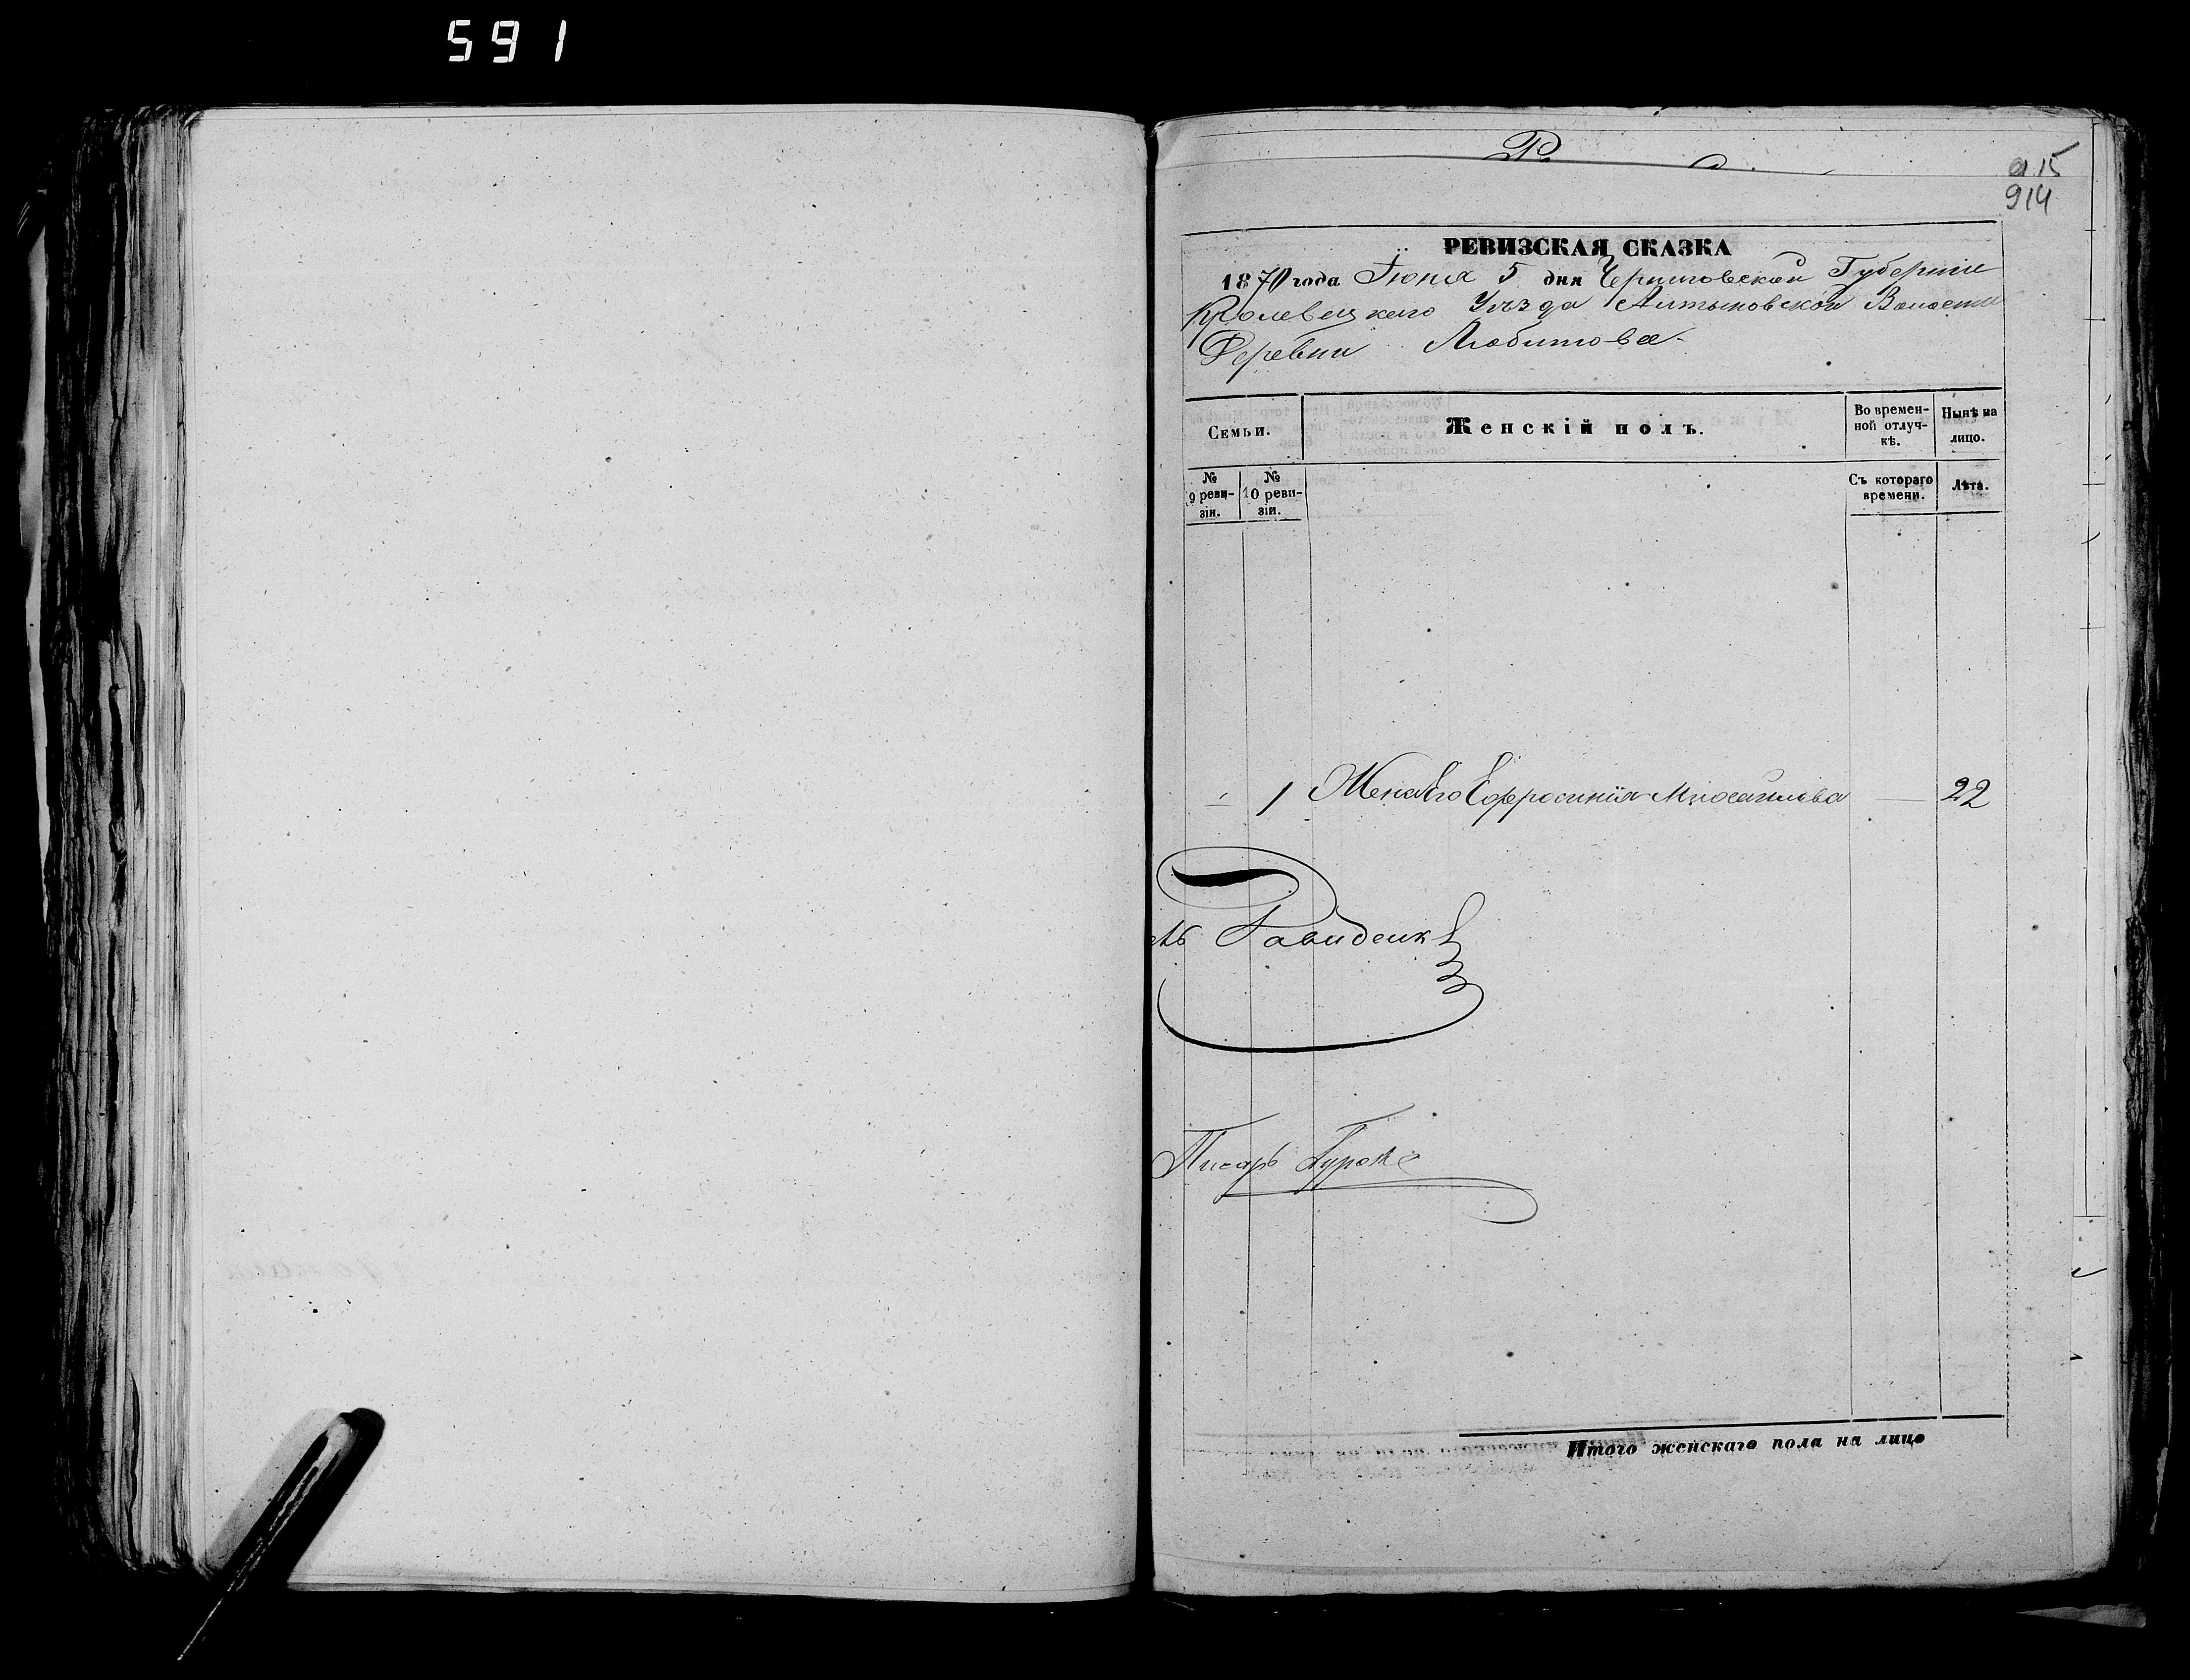 591
915
914
РЕВИЗСКАЯ СКАЗКА
1870 года Іюня 5 дня Черниговской Губерніи
Кролевецкаго Уѣзда Алтыновской Волости
Деревни Любитова
Семьи.
Женскій полъ.
Во времен-
ной отлуч-
кѣ.
Нынѣ на
лицо.
№
9 реви-
зіи.
№
10 реви-
зіи.
Съ котораго
времени.
Лѣта.
1 Жена Его Ефросинія — 22
Писарь
Итого женскаго пола на лицо